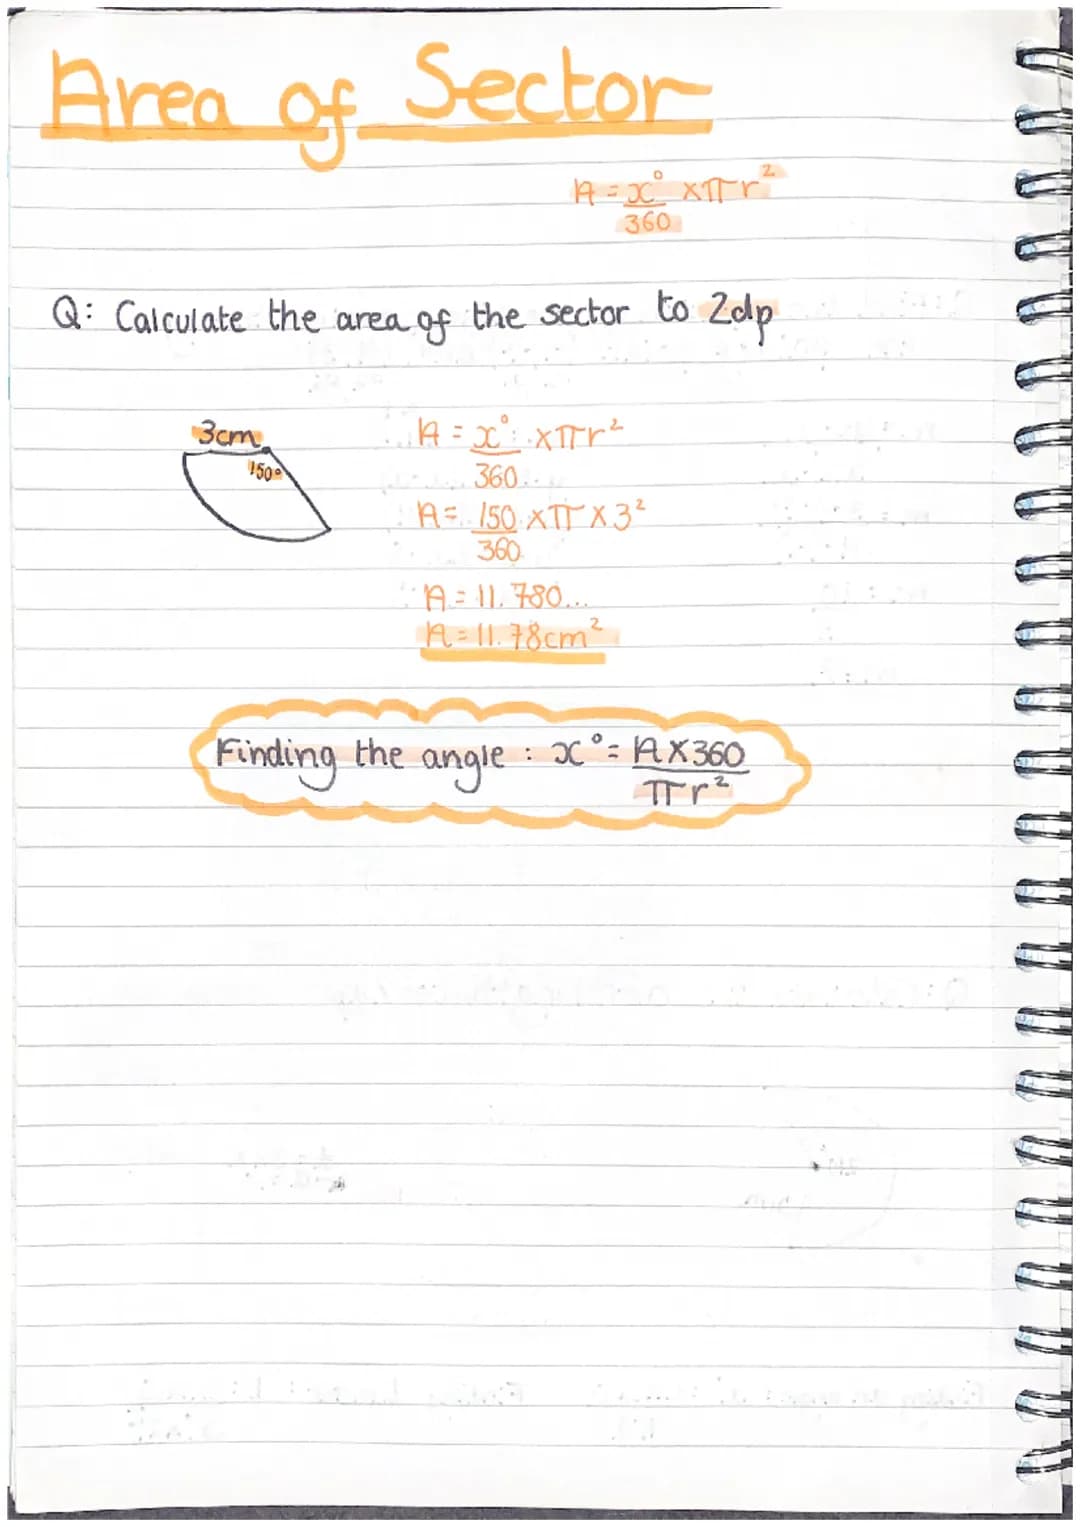 Area of Sector
A = x° × πr²
360
Q: Calculate the area of the sector to 2dp
3cm
150°
A = x° × πr²
360
A = 150 × π × 3²
360
A = 11.780...
A = 11.78cm²
Finding the angle : x° = A × 360
πr²